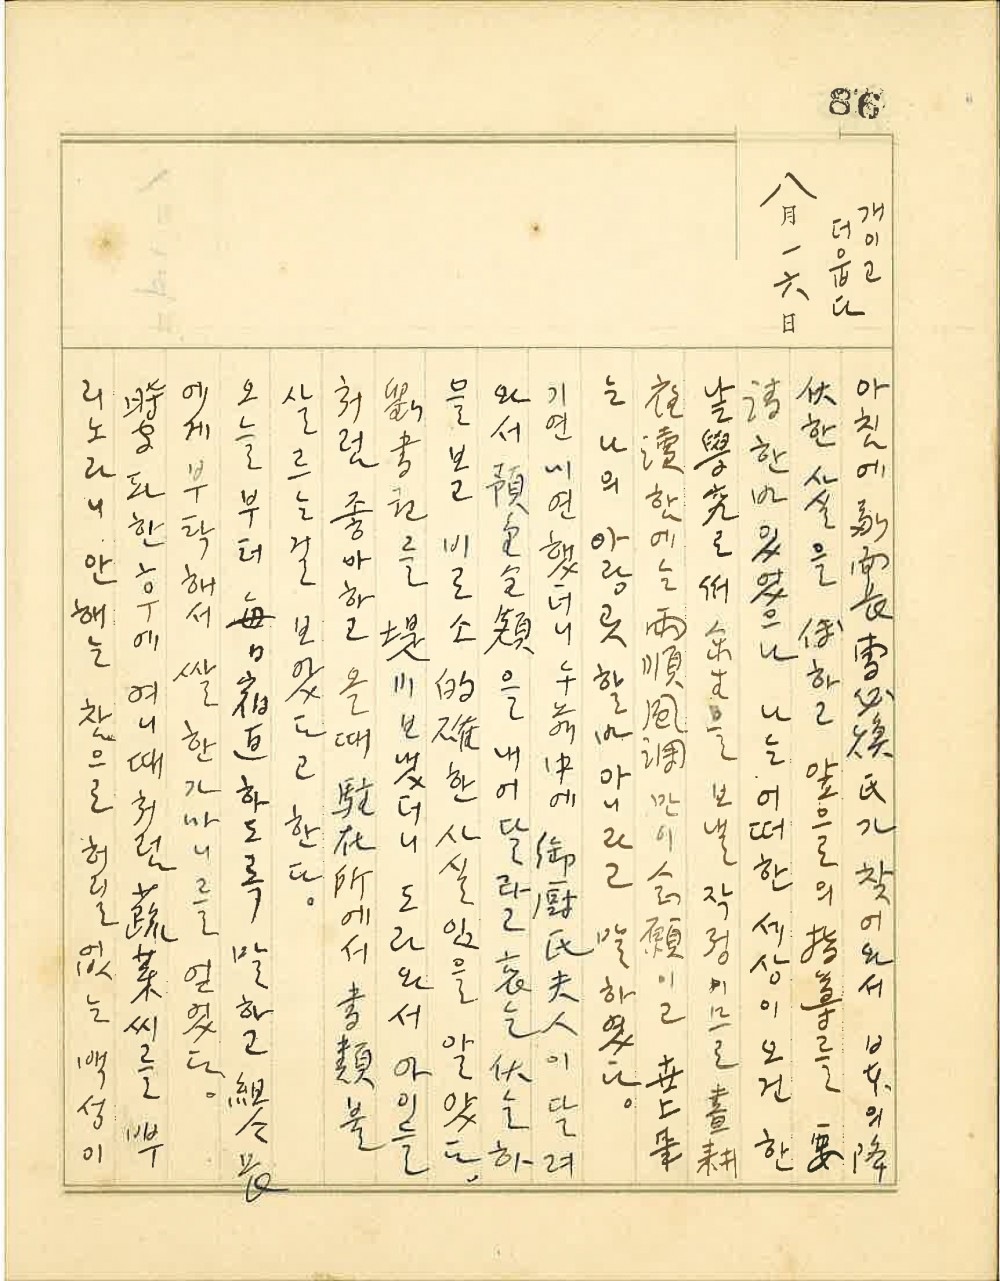 86
개이고
더웁다
八月一六日
아침에 副面長 雪必煥氏가 찾어와서 日本의 降
伏한 사실을 傳하고 앞으로의 指導를 要
請한바 있었으나 나는 어떠한 세상이 오건 한
낱 學究로써 余生을 보낼 작정이므로 晝耕
夜讀한에는 雨順風調만이 念願이고 世上事
는 나의 아랑곳 할바 아니라고 말하였다.
기연 미연했더니 누 中에 御厨氏夫人이 달려
와서 預金全額을 내어 달라고 哀乞伏乞하
믈 보고 비로소 的確한 사실임을 알았다.
劉書記를 堤川 보냈더니 도라와서 아이들
처럼 좋아하고 올때 駐在所에서 書類불
살르는걸 보았다고 한다.
오늘부터 每日 宿直하도록 말하고 組合長
에게 부탁해서 쌀 한가마니를 얻었다.
時 파한 후에 여니때처럼 蔬菜씨를 뿌
리노라니 안해는 참으로 허릴없는 백성이